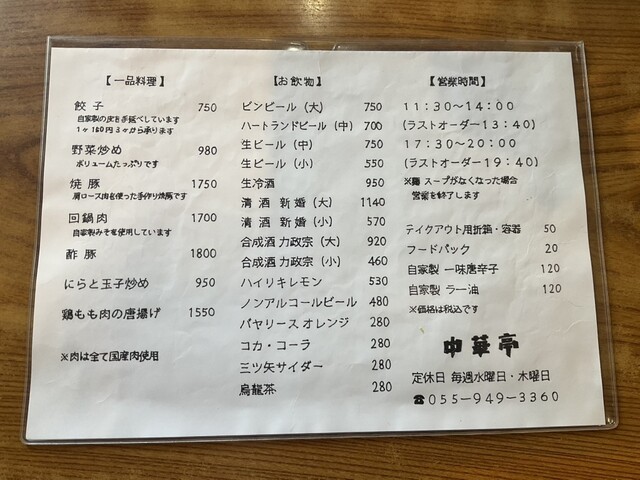 【一品料理】
餃子 750
自家製の皮を手延べしています
1ヶ180円 3ヶから承ります
野菜炒め 980
ボリュームたっぷりです
焼豚 1750
肩ロース肉を使った手作り焼豚です
回鍋肉 1700
自家製みそを使用しています
酢豚 1800
にらと玉子炒め 950
鶏もも肉の唐揚げ 1550
※肉は全て国産肉使用
【お飲物】
ビンビール（大） 750
ハートランドビール（中） 700
生ビール（中） 750
生ビール（小） 550
生冷酒 950
清酒 新婚（大） 1140
清酒 新婚（小） 570
合成酒 力政宗（大） 920
合成酒 力政宗（小） 460
ハイリキレモン 530
ノンアルコールビール 480
バヤリース オレンジ 280
コカ・コーラ 280
三ツ矢サイダー 280
烏龍茶 280
【営業時間】
11:30〜14:00
(ラストオーダー13:40)
17:30〜20:00
(ラストオーダー19:40)
※麺 スープがなくなった場合
営業を終了します
テイクアウト用折箱・容器 50
フードパック 20
自家製 一味唐辛子 120
自家製 ラー油 120
※価格は税込です
中華亭
定休日 毎週水曜日・木曜日
☎055-949-3360